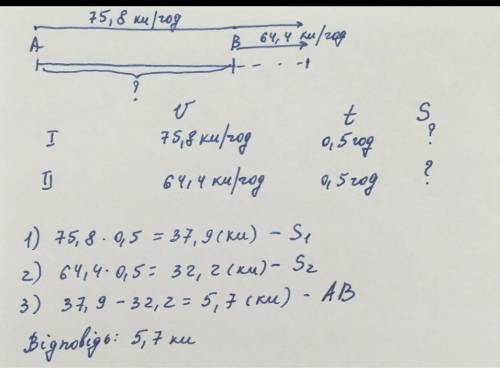 75,8 км/год
A B 64,4 км/год
?
V t S
I 75,8 км/год 0,5 год ?
II 64,4 км/год 0,5 год ?
1) 75,8 · 0,5 = 37,9 (км) - S₁
2) 64,4 · 0,5 = 32,2 (км) - S₂
3) 37,9 - 32,2 = 5,7 (км) - AB
Відповідь: 5,7 км